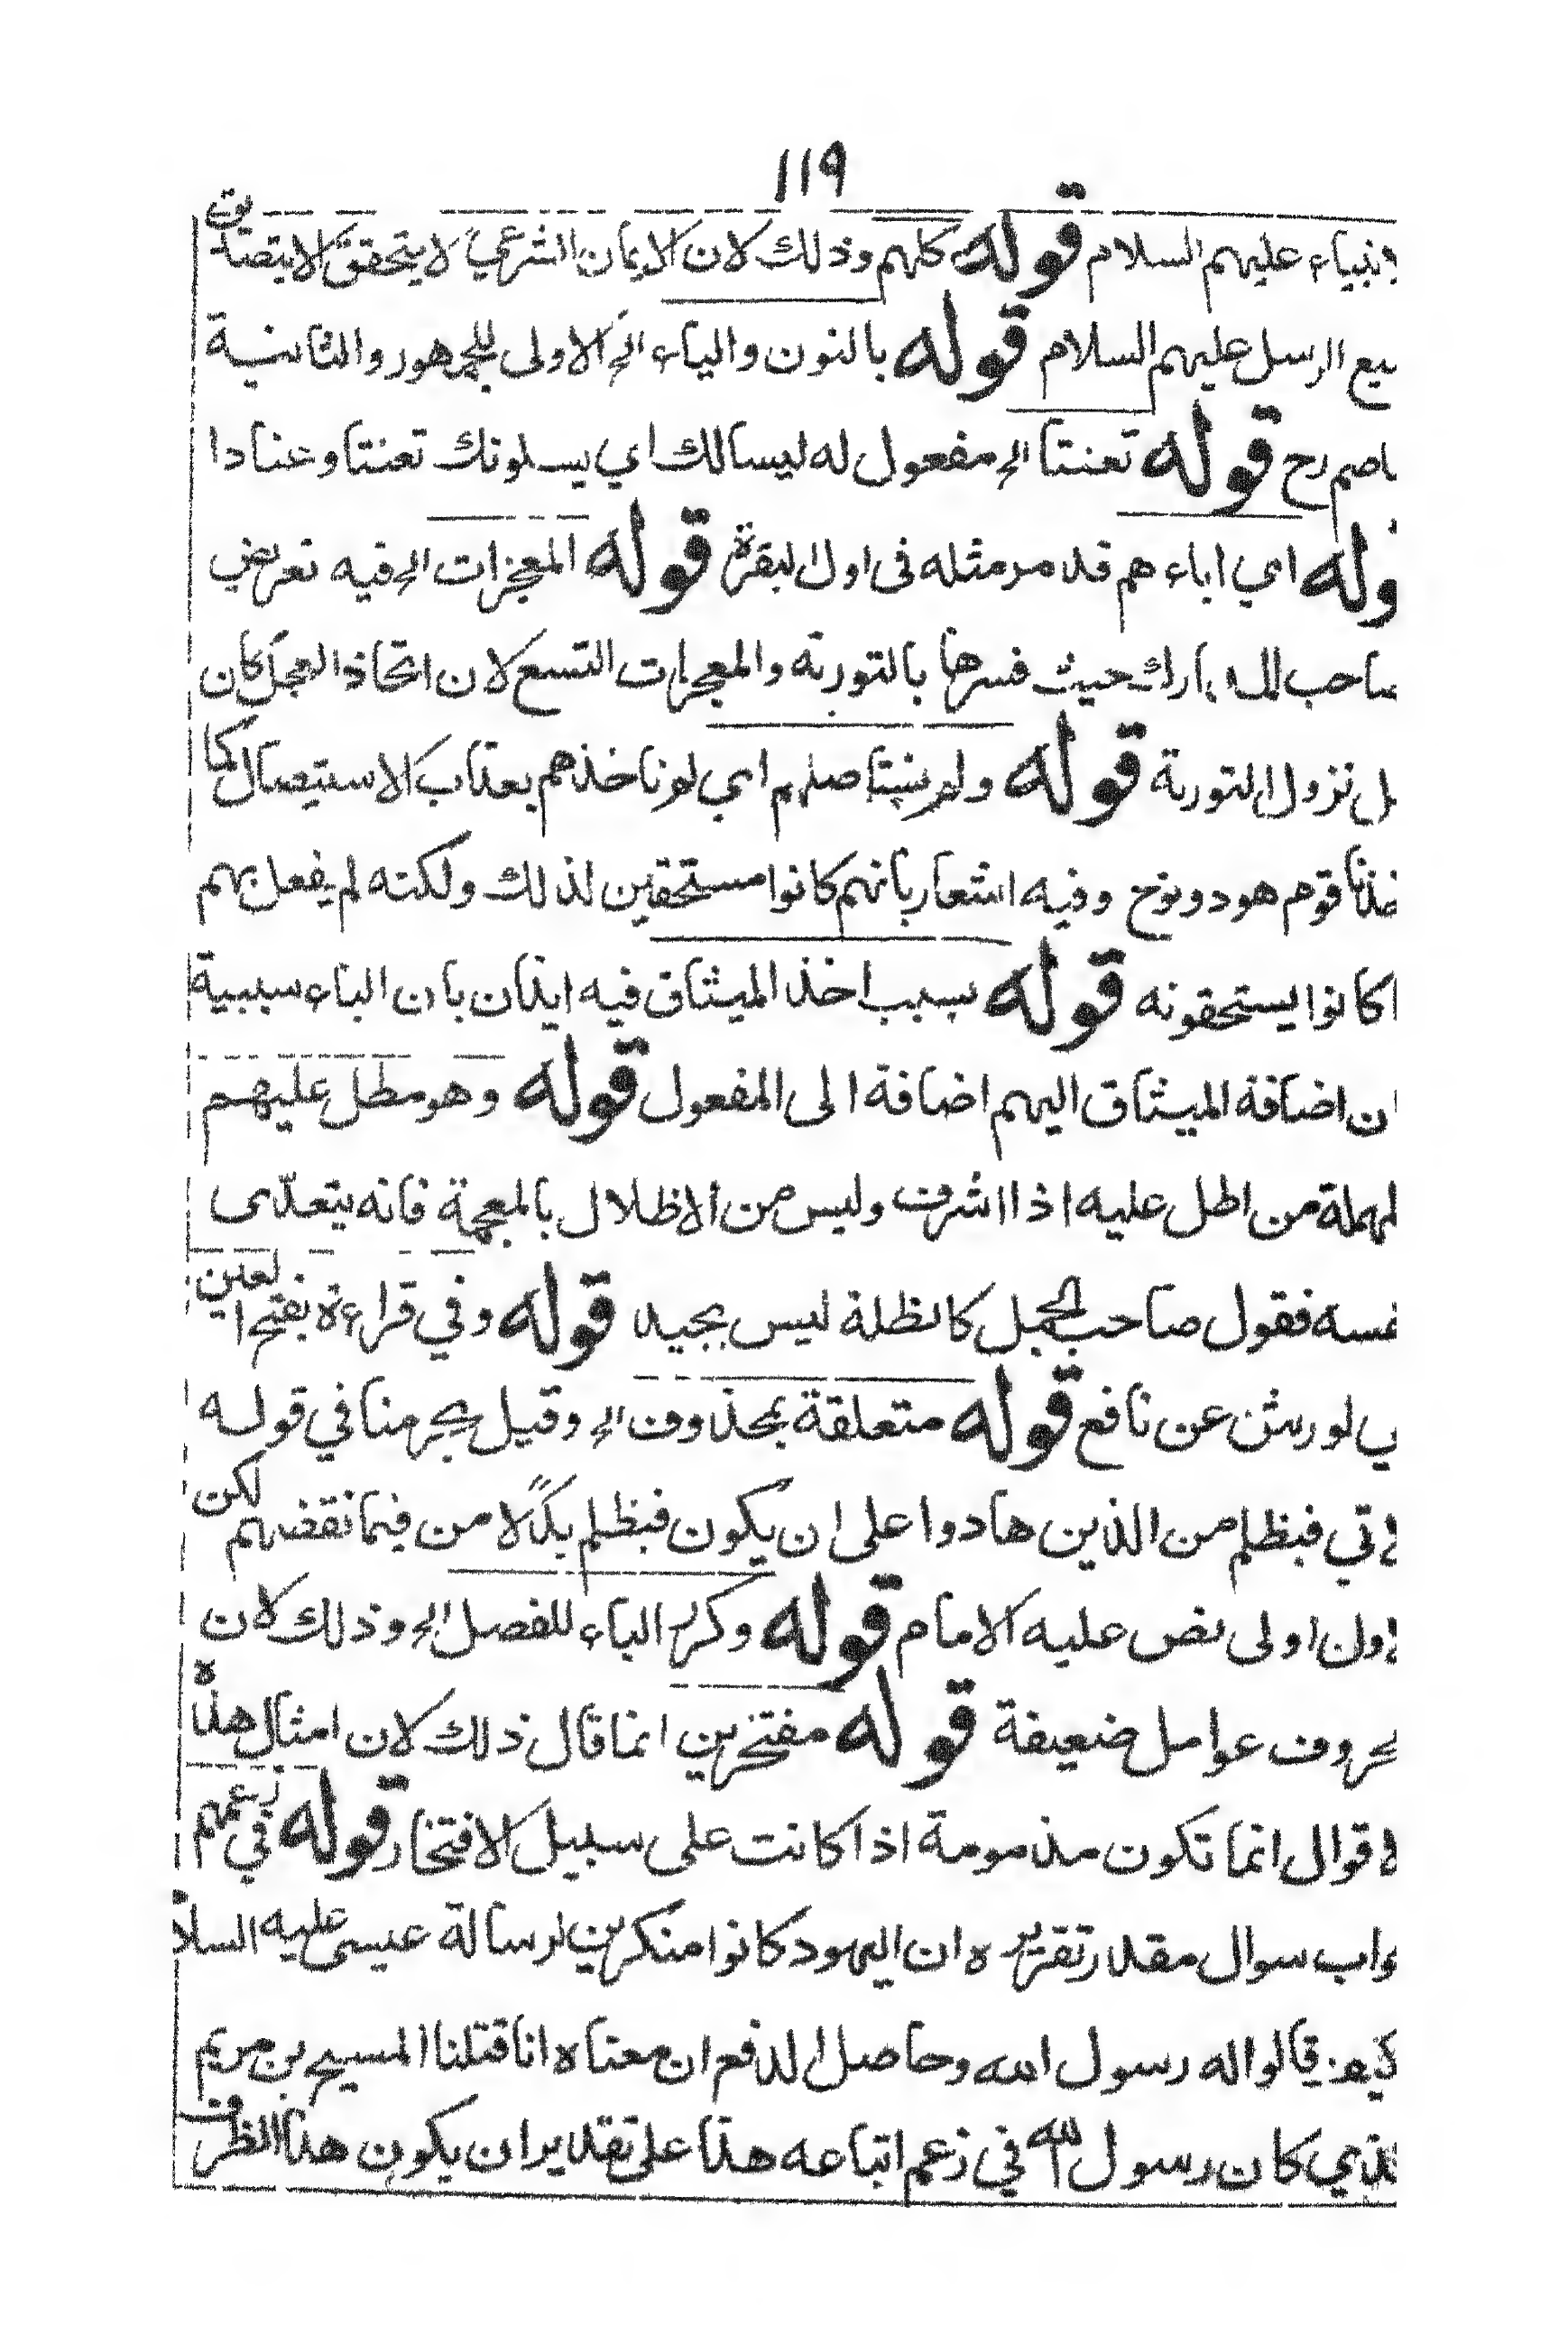 ١١٩
لانبياء عليهم السلام قوله كلهم وذلك لان الايمان الشرعي لا يتحقق الا بتصديق
ميع الرسل عليهم السلام قوله بالنون والياء الخ الاولى للجمهور والثانية
عاصم رح قوله تعنتا الخ مفعول له ليسالك اي يسلونك تعنتا وعنادا
وله اي اباءهم قد مر مثله فى اول البقرة قوله المعجزات الخ فيه تعريض
صاحب المدارك حيث فسرها بالتورية والمعجزات التسع لان اتخاذ العجل كان
بل نزول التورية قوله ولم نستاصلهم اي لم ناخذهم بعذاب الاستيصال كما
خذنا قوم هود ونوح وفيه اشعار بانهم كانوا مستحقين لذلك ولكنه لم يفعل بهم
ا كانوا يستحقونه قوله بسبب اخذ الميثاق فيه ايذان بان الباء سببية
ان اضافة الميثاق اليهم اضافة الى المفعول قوله وهو مطل عليهم
لمهملة من اطل عليه اذا اشرف وليس من الاظلال بالمعجمة فانه يتعدى
نفسه فقول صاحب الجمل كالظلة ليس بجيد قوله وفي قراءة بفتح العين
ي لورش عن نافع قوله متعلقة بمحذوف الخ وقيل بحرمنا في قوله
لاتي فبظلم من الذين هادوا على ان يكون فبظلم بدلا من فبما نقضهم لكن
لاول اولى نص عليه الامام قوله وكرر الباء للفصل الخ وذلك لان
لحروف عوامل ضعيفة قوله مفتخرين انما قال ذلك لان امثال هذه
لاقوال انما تكون مذمومة اذا كانت على سبيل الافتخار قوله في زعمهم
واب سوال مقدر تقريره ان اليهود كانوا منكرين لرسالة عيسى عليه السلام
كيف قالوا اله رسول الله وحاصل الدفع ان معناه انا قتلنا المسيح بن مريم
لذي كان رسول الله في زعم اتباعه هذا على تقدير ان يكون هذا الظرف